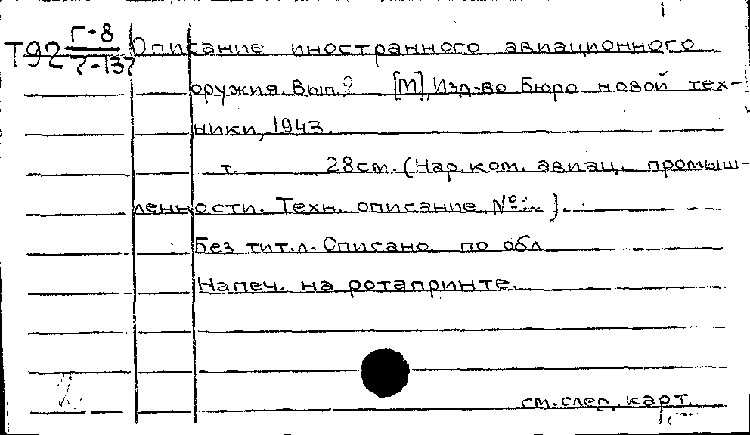 Т92 Г-8 Описание иностранного авиационного
7-137 оружия. Вып. ? [М], Изд-во Бюро новой тех-
ники, 1943.
т. 28см. (Нар. ком. авиац. промыш-
ленности. Техн. описание №...).
Без тит. л. Описано по обл
Напеч. на ротапринте.
см. след. карт.